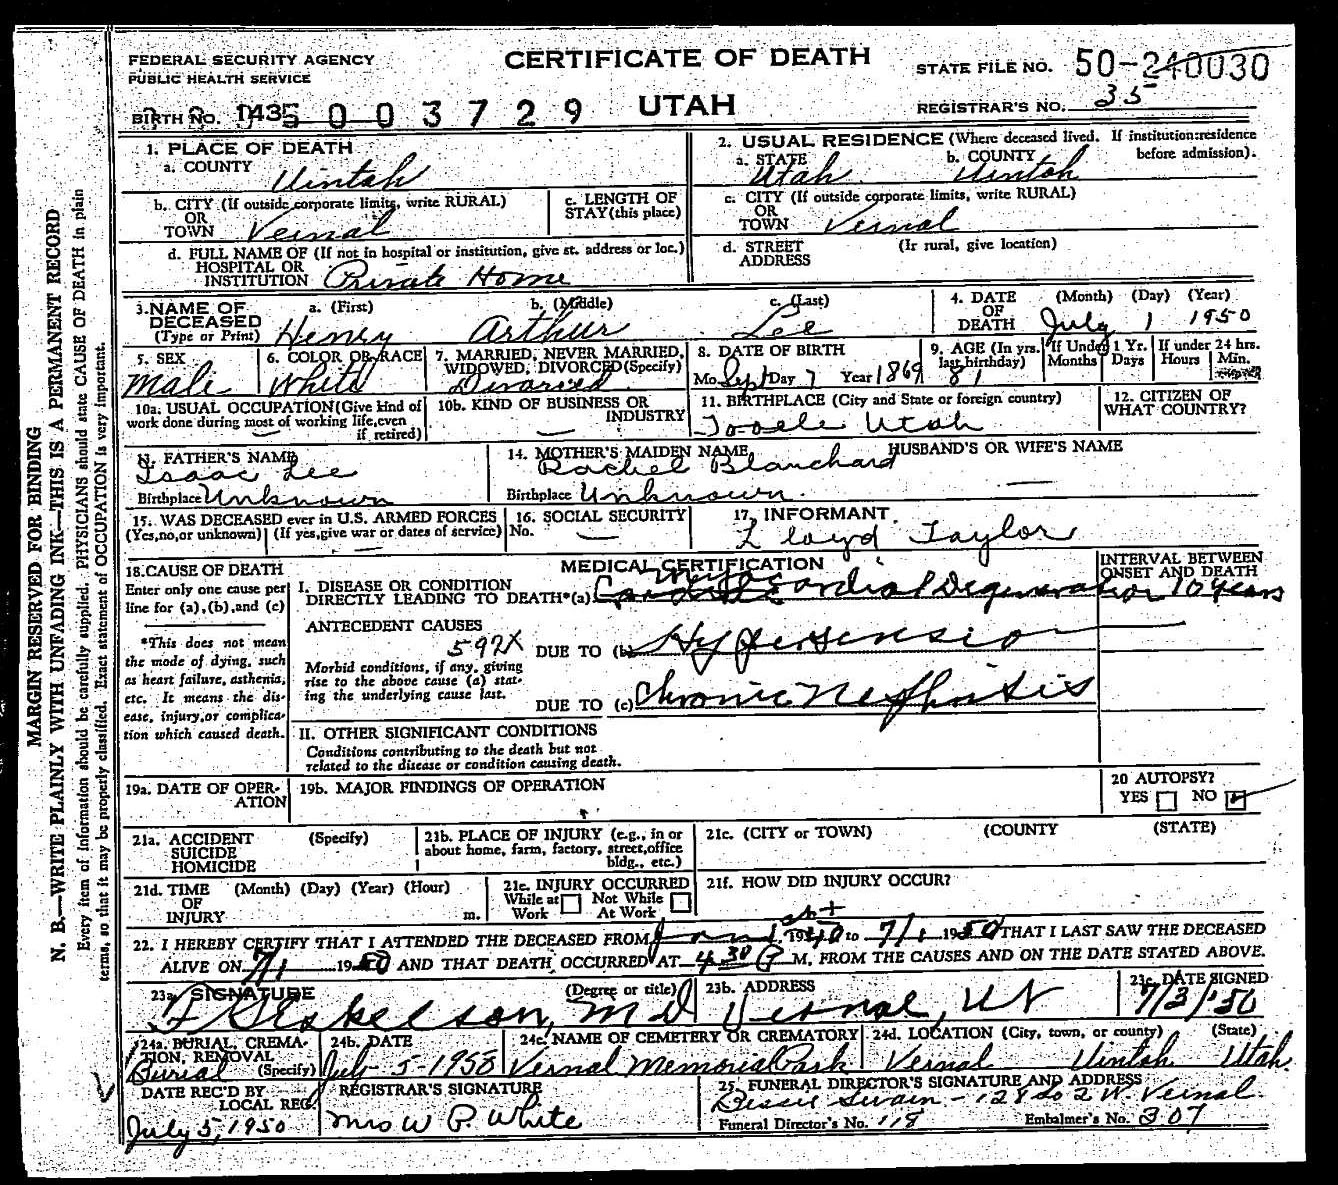 CERTIFICATE OF DEATH
UTAH
FEDERAL SECURITY AGENCY
PUBLIC HEALTH SERVICE
STATE FILE NO. 50-240030
REGISTRAR'S NO. 35
BIRTH NO. 1435 0 0 3 7 2 9
1. PLACE OF DEATH
a. COUNTY Uintah
2. USUAL RESIDENCE (Where deceased lived. If institution:residence before admission).
a. STATE Utah b. COUNTY Uintah
b. CITY (If outside corporate limits, write RURAL) OR TOWN Vernal
c. LENGTH OF STAY (this place)
c. CITY (If outside corporate limits, write RURAL) OR TOWN Vernal
d. FULL NAME OF (If not in hospital or institution, give st. address or loc.) HOSPITAL OR INSTITUTION Private Home
d. STREET ADDRESS (Ir rural, give location)
3. NAME OF DECEASED (Type or Print) a. (First) Henry b. (Middle) Arthur c. (Last) Lee
4. DATE OF DEATH (Month) (Day) (Year) July 1 1950
5. SEX Male
6. COLOR OR RACE White
7. MARRIED, NEVER MARRIED, WIDOWED, DIVORCED (Specify) Divorced
8. DATE OF BIRTH Mo. Sept Day 7 Year 1869
9. AGE (In yrs. last birthday) 81
If Under 1 Yr. Months Days
If under 24 hrs. Hours Min.
10a. USUAL OCCUPATION (Give kind of work done during most of working life, even if retired) —
10b. KIND OF BUSINESS OR INDUSTRY —
11. BIRTHPLACE (City and State or foreign country) Tooele Utah
12. CITIZEN OF WHAT COUNTRY?
FATHER'S NAME Isaac Lee
Birthplace Unknown
14. MOTHER'S MAIDEN NAME Rachel Blanchard
Birthplace Unknown
HUSBAND'S OR WIFE'S NAME —
15. WAS DECEASED ever in U.S. ARMED FORCES (Yes, no, or unknown) (If yes, give war or dates of service) —
16. SOCIAL SECURITY No. —
17. INFORMANT. Lloyd Taylor
18. CAUSE OF DEATH
Enter only one cause per line for (a), (b), and (c)
*This does not mean the mode of dying, such as heart failure, asthenia, etc. It means the disease, injury, or complication which caused death.
MEDICAL CERTIFICATION
INTERVAL BETWEEN ONSET AND DEATH
I. DISEASE OR CONDITION DIRECTLY LEADING TO DEATH*(a) Myocardial Degeneration 10 years
ANTECEDENT CAUSES
592X
DUE TO (b) Hypertension
Morbid conditions, if any, giving rise to the above cause (a) stating the underlying cause last.
DUE TO (c) Chronic Nephritis
II. OTHER SIGNIFICANT CONDITIONS
Conditions contributing to the death but not related to the disease or condition causing death.
19a. DATE OF OPERATION
19b. MAJOR FINDINGS OF OPERATION
20 AUTOPSY? YES NO
21a. ACCIDENT SUICIDE HOMICIDE (Specify)
21b. PLACE OF INJURY (e.g., in or about home, farm, factory, street, office bldg., etc.)
21c. (CITY or TOWN) (COUNTY (STATE)
21d. TIME OF INJURY (Month) (Day) (Year) (Hour) m.
21e. INJURY OCCURRED While at Work Not While At Work
21f. HOW DID INJURY OCCUR?
22. I HEREBY CERTIFY THAT I ATTENDED THE DECEASED FROM Jan 1. 1940 to 7/1 1950 THAT I LAST SAW THE DECEASED
ALIVE ON 7/1 1950 AND THAT DEATH OCCURRED AT 4 30 P M, FROM THE CAUSES AND ON THE DATE STATED ABOVE.
23a. SIGNATURE (Degree or title) Eskelson, M D
23b. ADDRESS Vernal, Ut
23c. DATE SIGNED 7/3/'50
24a. BURIAL, CREMATION, REMOVAL (Specify) Burial
24b. DATE July 5-1950
24c. NAME OF CEMETERY OR CREMATORY Vernal Memorial Park
24d. LOCATION (City, town, or county) (State) Vernal Uintah Utah
DATE REC'D BY LOCAL REG. July 5, 1950
REGISTRAR'S SIGNATURE Mrs W P. White
25. FUNERAL DIRECTOR'S SIGNATURE AND ADDRESS Bessie Swain - 128 So 2 W. Vernal.
Funeral Director's No. 118 Embalmer's No. 307
MARGIN RESERVED FOR BINDING
N. B.—WRITE PLAINLY WITH UNFADING INK—THIS IS A PERMANENT RECORD
Every item of information should be carefully supplied. PHYSICIANS should state CAUSE OF DEATH in plain
terms, so that it may be properly classified. Exact statement of OCCUPATION is very important.